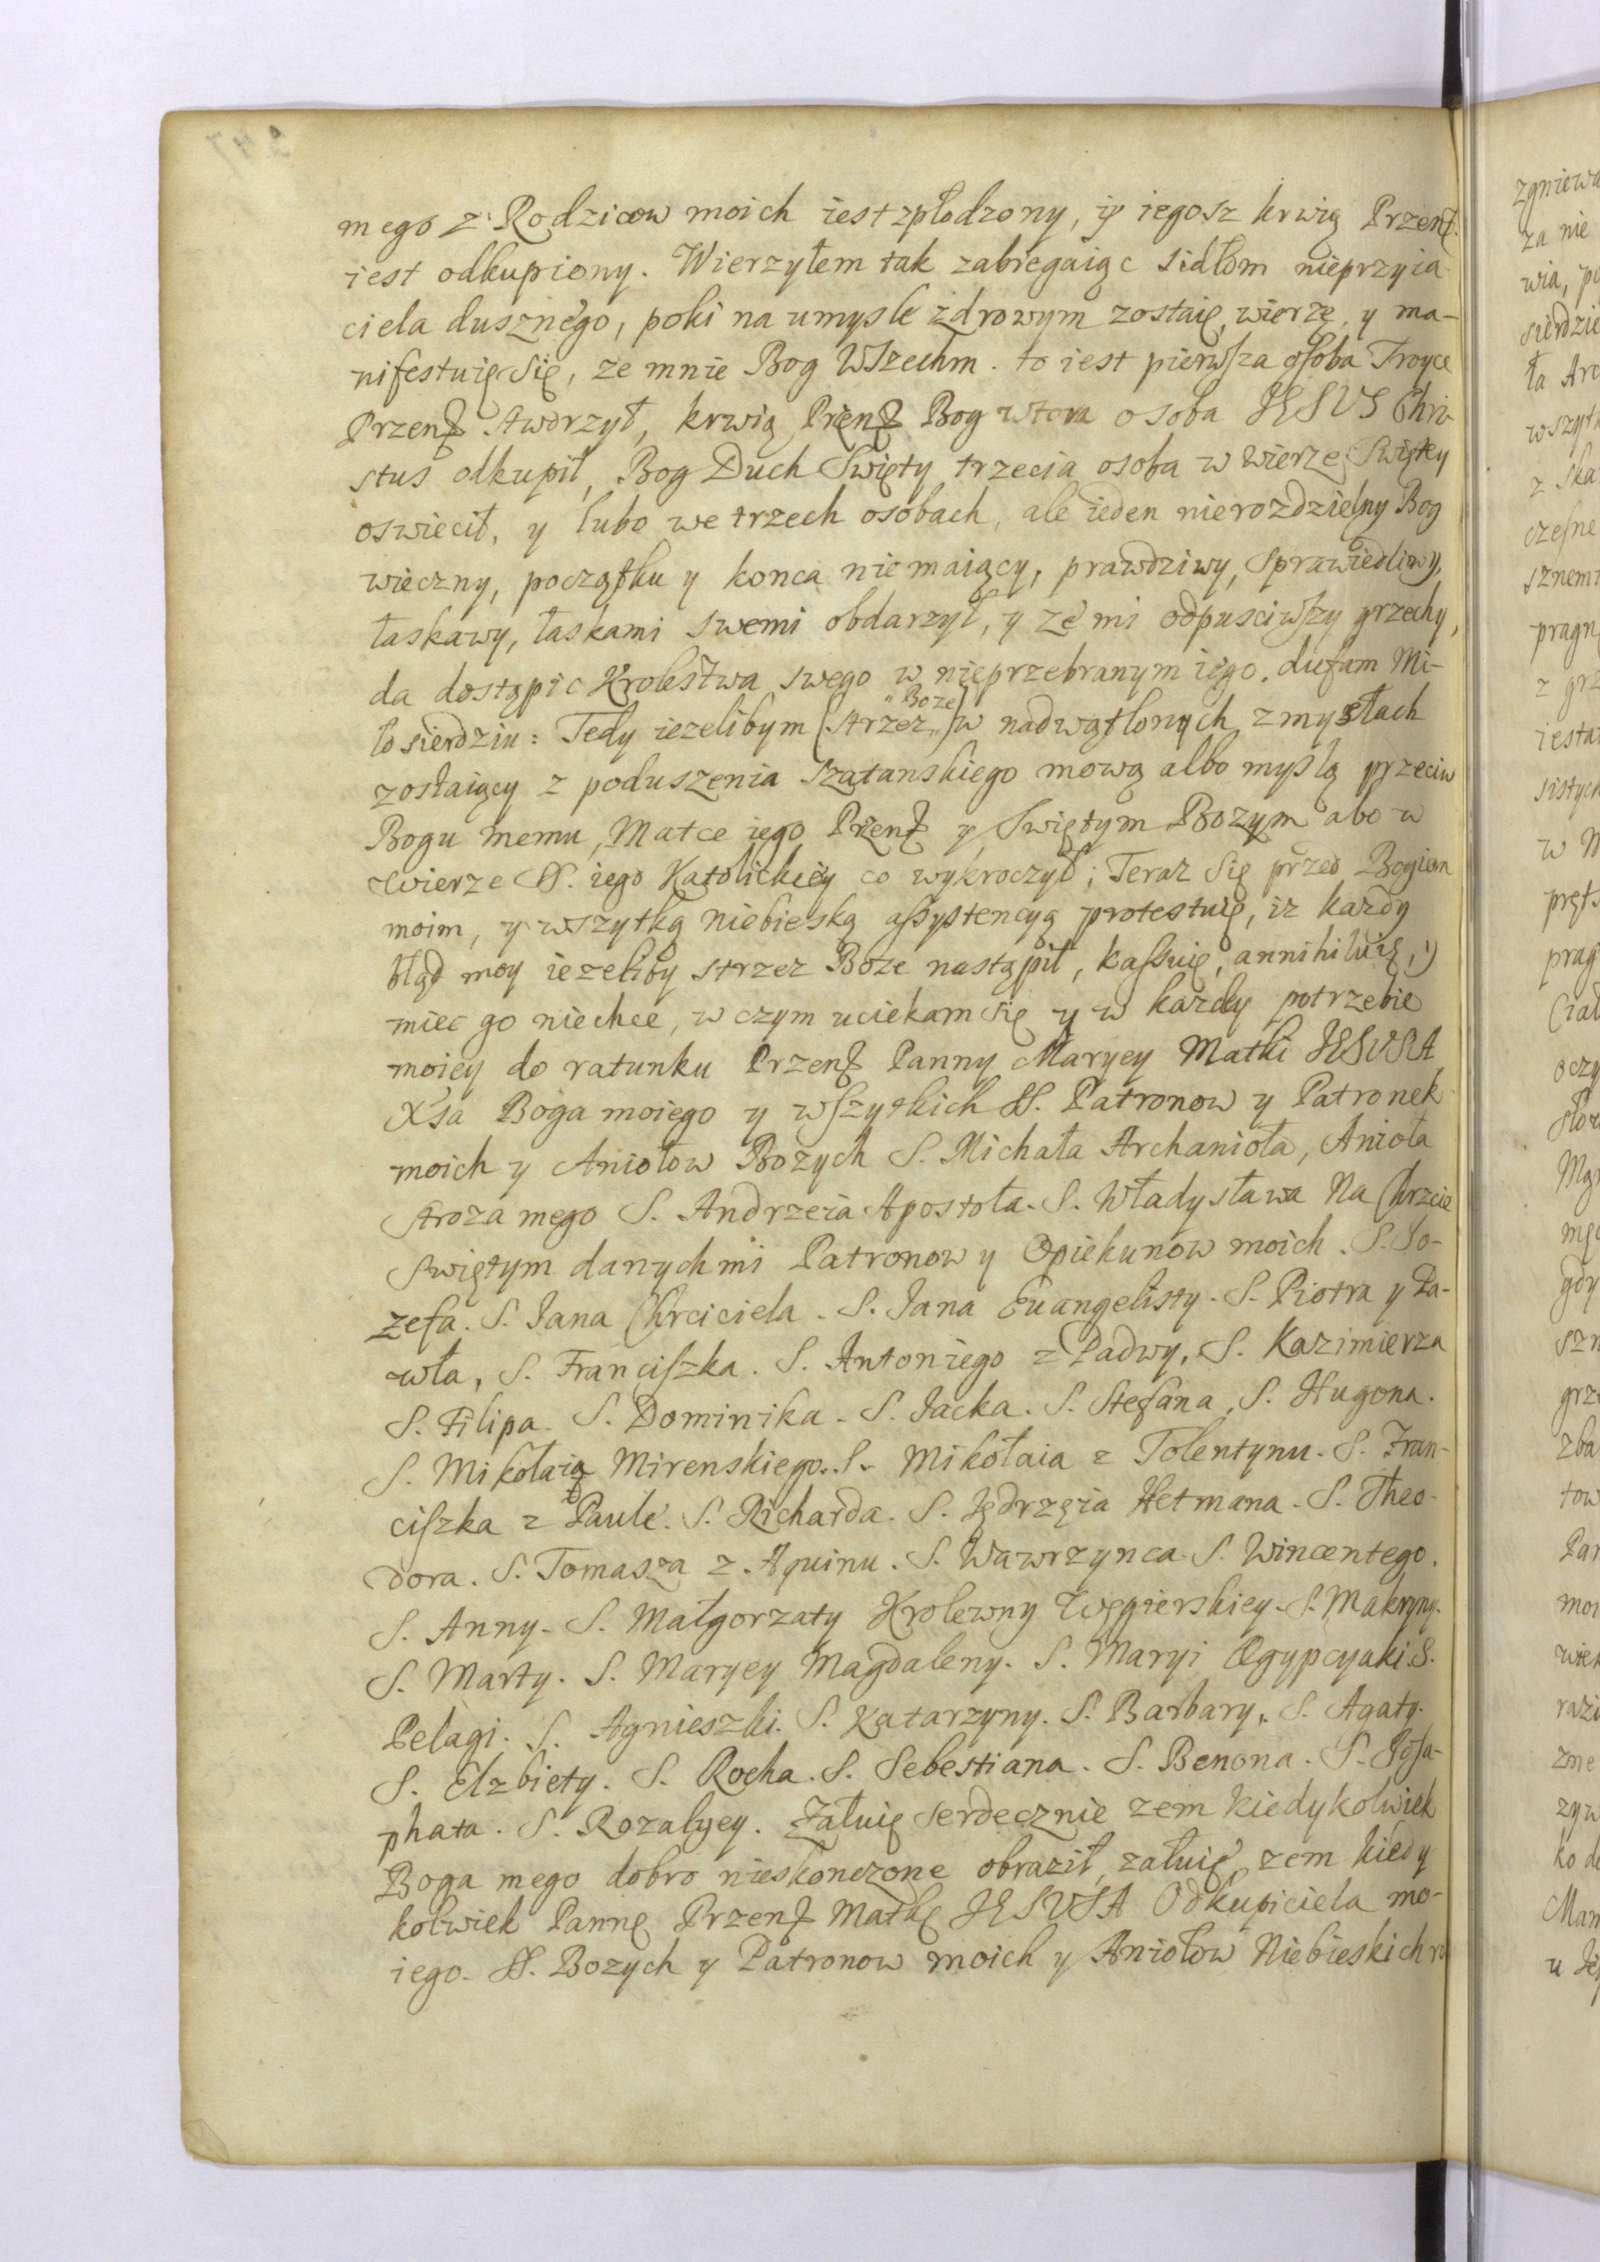 mego z Rodzicow moich iest zpłodzony, iż iegosz krwią Przenſ.
iest odkupiony. Wierzyłem tak zabiegaiąc sidłom nieprzyia
ciela dusznego, poki na umysle zdrowym zostaię, wierzę, y ma-
nifestuię się, ze mnie Bog Wszechm. to iest pierwſza oſoba Troyce
Przenſ stworzył, krwią Przenſ Bog wtora osoba JESUS Chri-
stus odkupił, Bog Duch Swięty trzecia osoba w wierze Swiętey
oswiecił, y lubo we trzech osobach, ale ieden nierozdzielny Bog
wieczny, początku y konca niemaiący, prawdziwy, sprawiedliwy,
łaskawy, łaskami swemi obdarzył, y ze mi odpusciwſzy grzechy,
da dostąpic Krolestwa swego w nieprzebranym iego. dufam Mi-
łosierdziu: Tedy iezelibym (strzez Boze) w nadwątlonych zmysłach
zostaiący z poduszenia szatanskiego mową albo myslą przeciw
Bogu memu, Matce iego Przenſ y Swiętym Bozym abo w
wierze SS. iego Katolickiey co wykroczył; Teraz się przed Bogiem
moim, y wszytką niebieską aſsystencyą protestuię, iz kazdy
błąd moy iezeliby strzez Boze nastąpił, kaſsuię, annihiluię, y
miec go niechce, w czym uciekam się y w kazdey potrzebie
moiey do ratunku Przenſ Panny Maryey Matki JESUSA
Xsa Boga moiego y wſzytkich SS. Patronow y Patronek
moich y Aniołow Bozych S. Michała Archanioła, Anioła
stroza mego S. Andrzeia Apostoła. S. Władysława Na Chrzcie
Swiętym danych mi Patronow y Opiekunow moich. S. Jo-
zefa. S. Jana Chrciciela. S. Jana Euangelisty. S. Piotra y Pa-
wła, S. Franciſzka. S. Antoniego z Padwy, S. Kazimierza
S. Filipa. S. Dominika. S. Jacka. S. Stefana, S. Hugona.
S. Mikołaia Mirenskiego. S. Mikołaia z Tolentynu. S. Fran-
ciſzka z Paule. S. Richarda. S. Jędrzeia Hetmana. S. Theo-
dora. S. Tomasza z Aquinu. S. Wawrzynca. S. Wincentego.
S. Anny. S. Małgorzaty Krolewny Węgierskiey. S. Makryny.
S. Marty. S. Maryey Magdaleny. S. Maryi Ægypcyaki. S.
Pelagi. S. Agnieszki. S. Katarzyny. S. Barbary, S. Agaty.
S. Elzbiety. S. Rocha. S. Sebestiana. S. Benona. S. Joſa-
phata. S. Rozalyey. Załuię serdecznie zem kiedykolwiek
Boga mego dobro nieskonczone obraził, załuię, zem kiedy
kolwiek Pannę Przenſ Matkę JESUSA Odkupiciela mo-
iego. SS. Bozych y Patronow moich y Aniołow Niebieskich